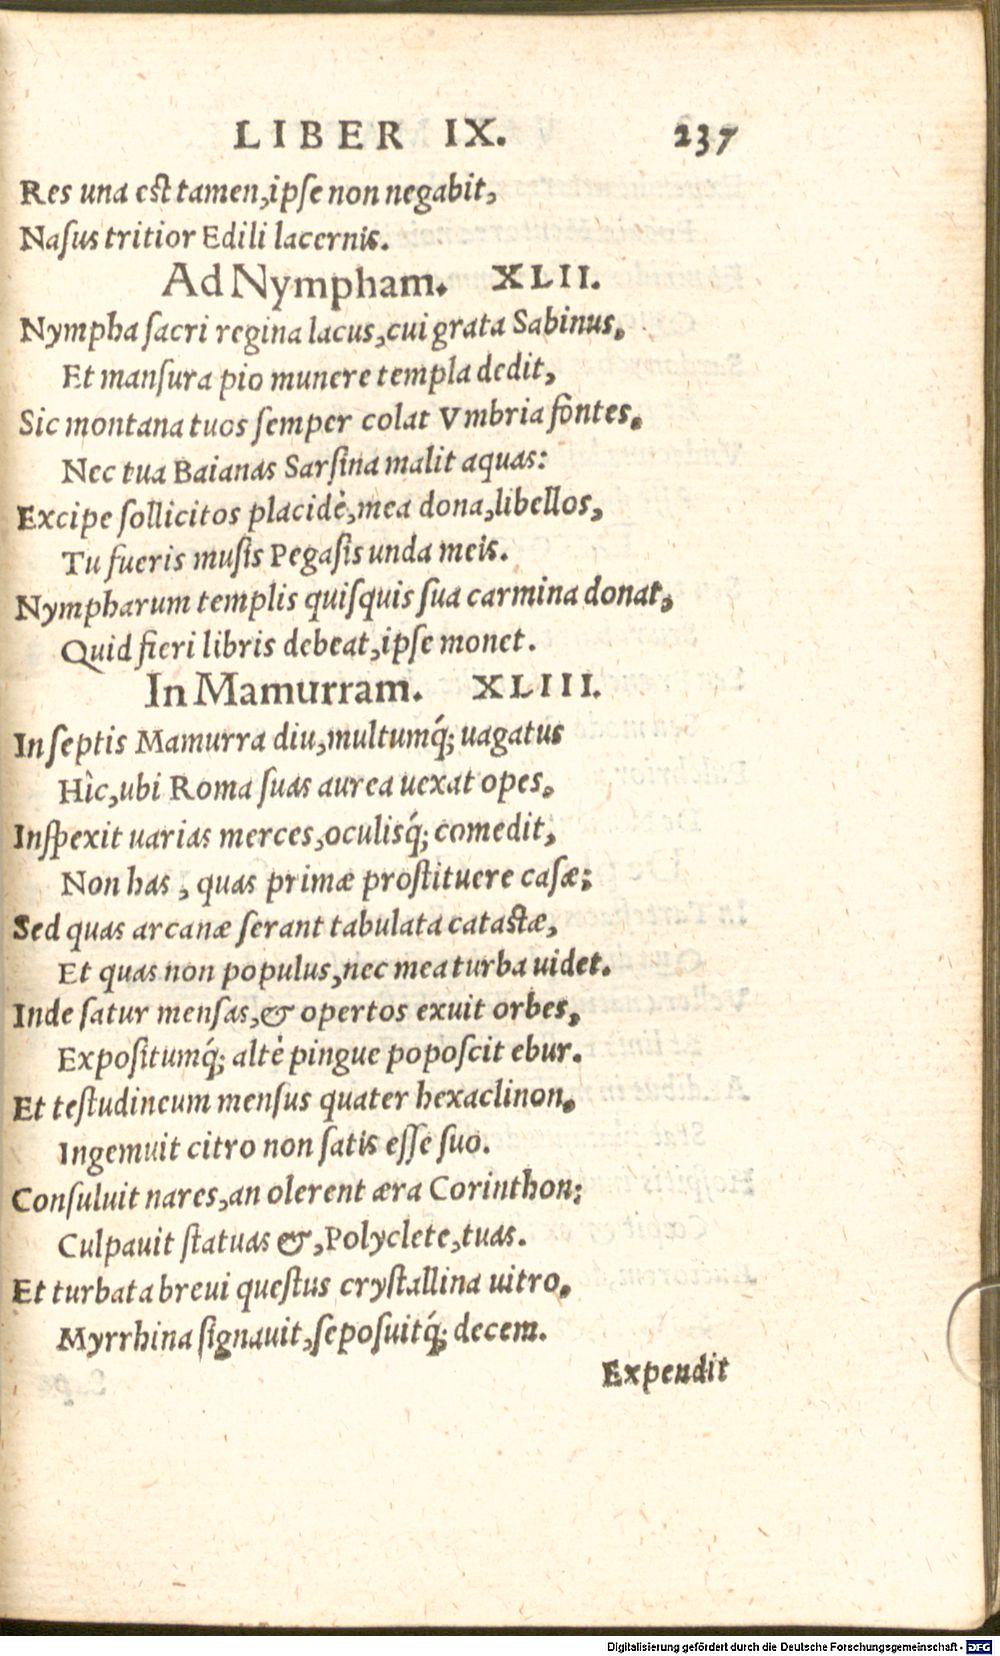 LIBER IX. 237
Res una est tamen, ipse non negabit,
Nasus tritior Edili lacernis.
Ad Nympham. XLII.
Nympha sacri regina lacus, cui grata Sabinus,
Et mansura pio munere templa dedit,
Sic montana tuos semper colat Vmbria fontes,
Nec tua Baianas Sarsina malit aquas:
Excipe sollicitos placidè, mea dona, libellos,
Tu fueris musis Pegasis unda meis.
Nympharum templis quisquis sua carmina donat,
Quid fieri libris debeat, ipse monet.
In Mamurram. XLIII.
In septis Mamurra diu, multumq́; uagatus
Hìc, ubi Roma suas aurea uexat opes,
Inspexit uarias merces, oculisq́; comedit,
Non has, quas primæ prostituere casæ;
Sed quas arcanæ serant tabulata catastæ,
Et quas non populus, nec mea turba uidet.
Inde satur mensas, & opertos exuit orbes,
Expositumq́; altè pingue poposcit ebur.
Et testudineum mensus quater hexaclinon,
Ingemuit citro non satis esse suo.
Consuluit nares, an olerent æra Corinthon;
Culpauit statuas &, Polyclete, tuas.
Et turbata breui questus crystallina uitro,
Myrrhina signauit, seposuitq́; decem.
Expendit
Digitalisierung gefördert durch die Deutsche Forschungsgemeinschaft - DFG